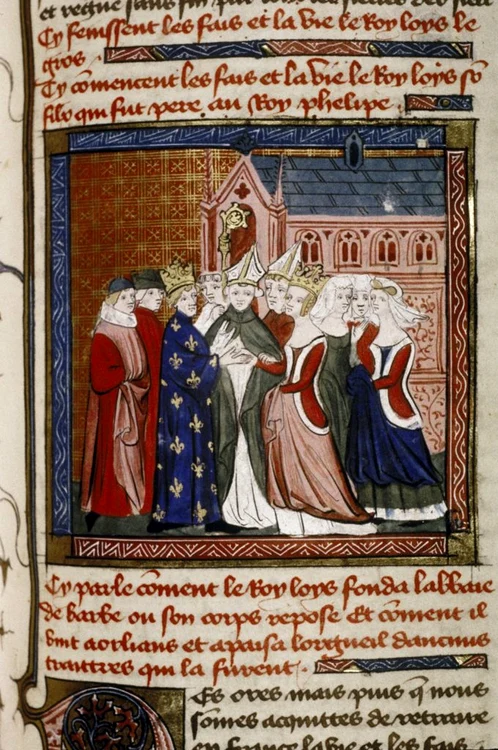 et regne sans fin
Cy fenissent les fais et la vie le Roy loys le
gros
Cy cōmencent les fais et la vie le Roy loÿs sō
filz qui fut pere au Roy phelipe
Cy parle cōment le Roy loys fonda labbaie
de barbe ou son corps repose Et cōment il
vint a orlians et apaisa lorgueil daucuns
traittres qui la furent
Es ores mais puis q̄ nous
sōmes acquittes de retraire